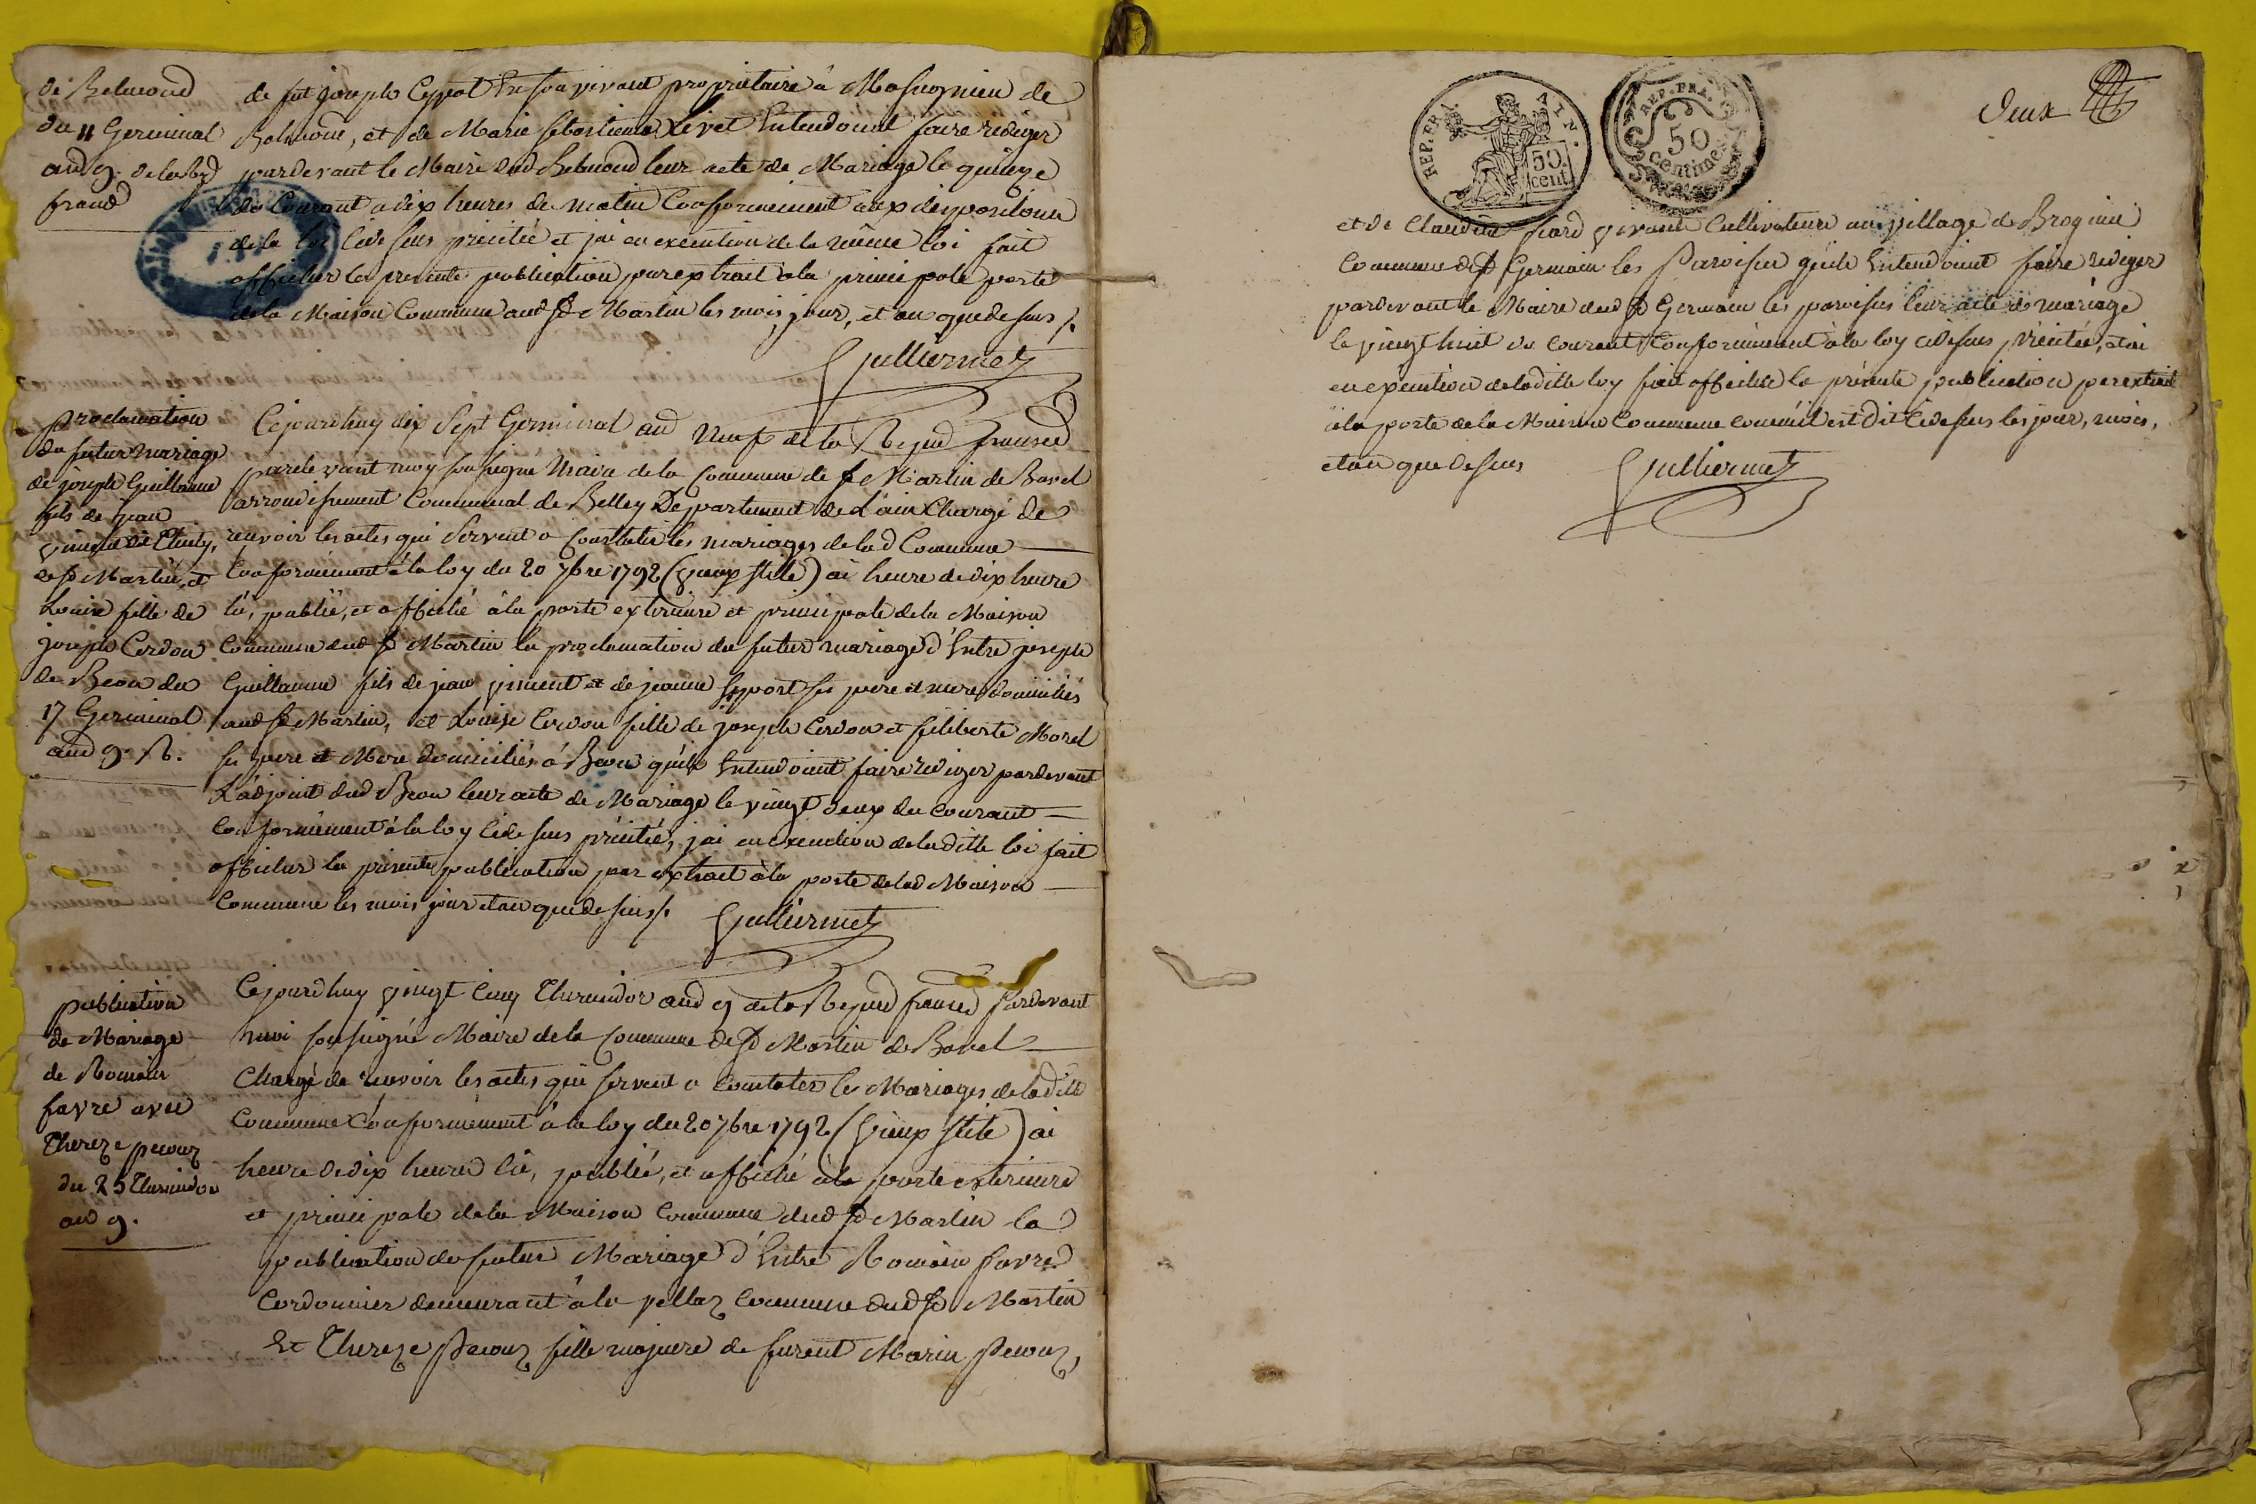 de Belmond
du 11 Germinal
and 9. de la
de feu joseph Ceyzat En son vivant proprietaire à Massignieu de
Belmond, et de Marie sebastienne Livet Entendoint faire rediger
pardevant le Maire dud Belmond leur acte de Mariage le quinze
du Courant a dix heures de matin Conformement aux dispositions
de la loi Cidessus précitée et jai en execution de la même loi fait
afficher la presente publication par extrait à la principale porte
de la Maison Commune aud St Martin les mois, jour, et an que dessus /.
Gulliermet
proclamation
du futur mariage
de joseph Guillaume
fils de jean
vincent de
de St Martin, et
Louise fille de
joseph Cerdon
de Beon du
17 Germinal
and 9. R.
Cejourdhuy dix Sept Germinal and Neuf de la Repud francsed
pardevant moy soussigné Maire de la Commune de St Martin de Bavel
arrondissement Communal de Belley Departement de L'ain Chargé de
recevoir les actes qui Servent a Constater les mariages de lad Commune
Conformement à la loy du 20 7bre 1792 (vieux stile) ai heure de dix heure
lû, publié, et affiché à la porte exterieure et principale de la Maison
Commune dud St Martin la proclamation du futur mariage d'Entre joseph
Guillaume fils de jean vincent et de jeanne ses pere et mere domiciliés
aud St Martin, et Louise Cerdon fille de joseph Cerdon et filiberte Morel
ses pere et Mere domiciliés à Beon qu'ils Entendoint faire rediger pardevant
L'adjoint dud Beon leur acte de Mariage le vingt deux du Courant
Conformément à la loy Cidessus précitée, jai en execution de laditte loi fait
afficher la presente publication par extrait à la porte de lad Maison
Commune les mois jour et an que dessus /.
Gulliermet
publication
de Mariage
de Romain
favre avec
Thereze pecouz
du 25 Thermidor
and 9.
Cejourdhuy vingt Cinq Thermidor and 9 de la Repud francsed Pardevant
moi soussigné Maire de la Commune de St Martin de Bavel
Chargé de recevoir les actes qui servent a constater les Mariages de laditte
Commune Conformément à la loy du 20 7bre 1792 (vieux stile) ai
heure de dix heures lû, publié, et affiché à la porte exterieure
et principale de la Maison Commune dud St Martin la
publication du futur Mariage d'Entre Romain favre
Cordonnier demeurant à la vellaz Commune dud St Martin
Et Thereze Pecouz fille majeure de furent Marin Pecouz,
REP. FRA. AIN. 50 cent.
REP. FRA. 50 centimes
Deux
et de Claudine vivant Cultivateurs au village de Brognin
Commune de St Germain les Paroisses qu'ils Entendoint faire rediger
pardevant le Maire dud St Germain les paroisses leur acte de mariage
le vingt huit du Courant Conformément à la loy cidessus précitée, et ai
en exécution de laditte loy fait afficher la présente publication par extrait
à la porte de la Maison Commune comme il est dit Cidessus les jour, mois,
et an que dessus
Gulliermet